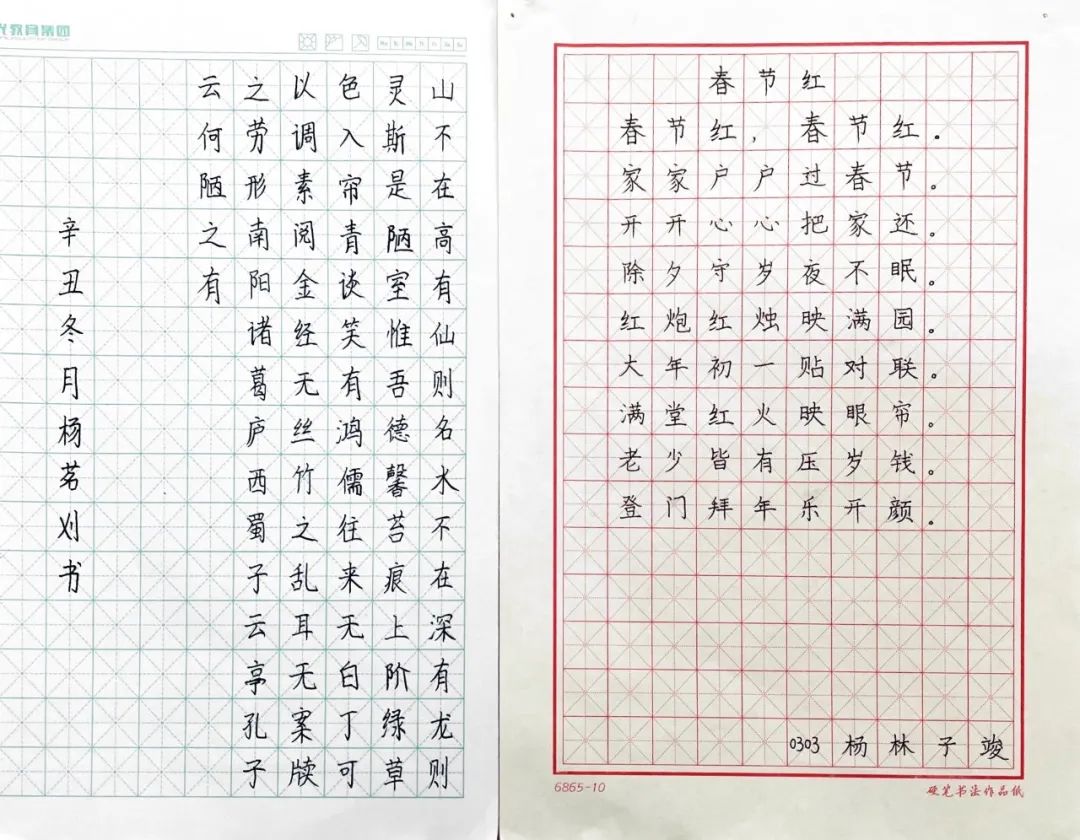 教育集团
山不在高有仙则名水不在深有龙则
灵斯是陋室惟吾德馨苔痕上阶绿草
色入帘青谈笑有鸿儒往来无白丁可
以调素阅金经无丝竹之乱耳无案牍
之劳形南阳诸葛庐西蜀子云亭孔子
云何陋之有
辛丑冬月杨茗刈书
春节红
春节红，春节红。
家家户户过春节。
开开心心把家还。
除夕守岁夜不眠。
红炮红烛映满园。
大年初一贴对联。
满堂红火映眼帘。
老少皆有压岁钱。
登门拜年乐开颜。
0303 杨林子竣
6865-10
硬笔书法作品纸